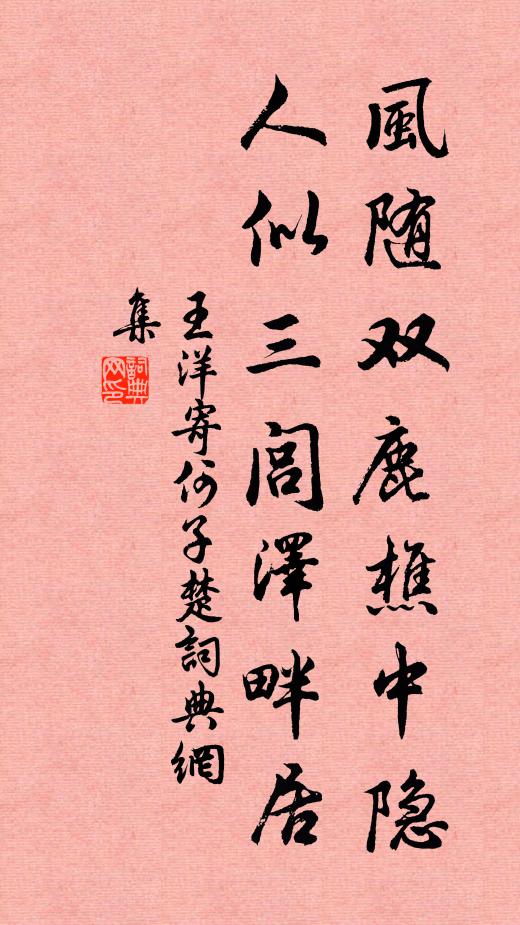 風随双鹿樵中隐
人似三閭澤畔居
王洋寄何子楚詞典網
集
詞典网印